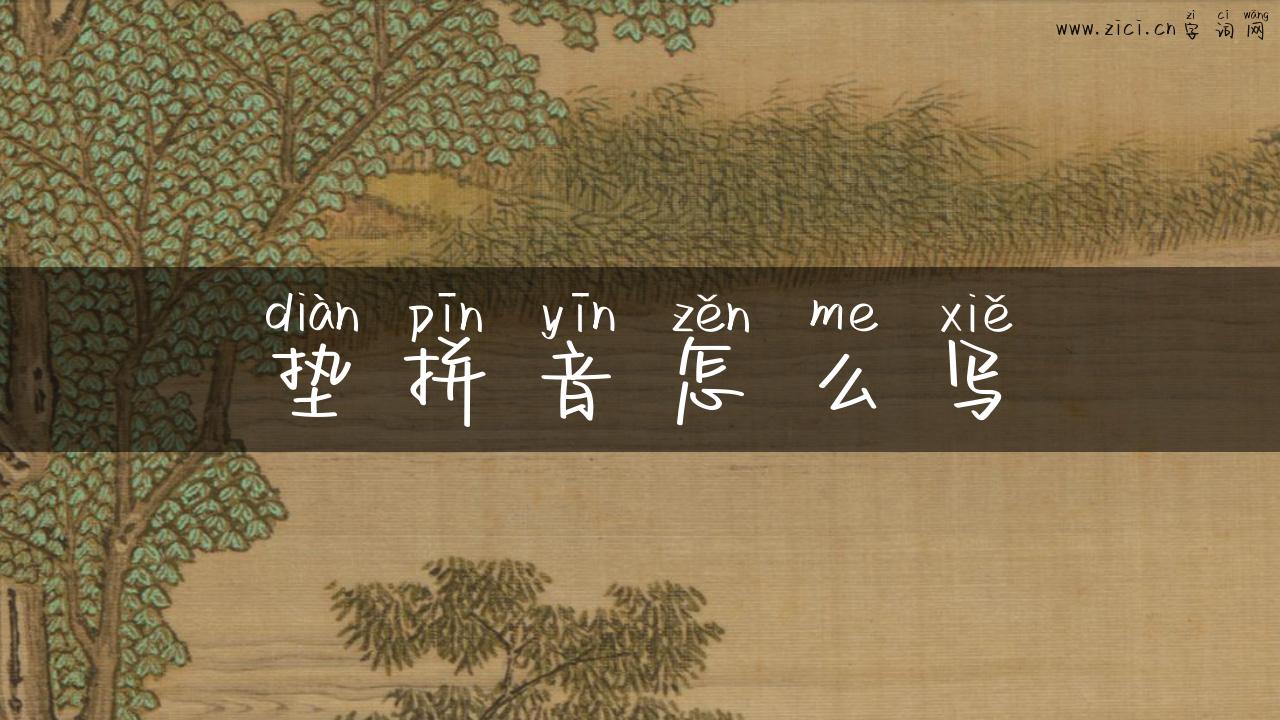 zì cí wǎng
www.zici.cn字词网
diàn pīn yīn zěn me xiě
垫拼音怎么写